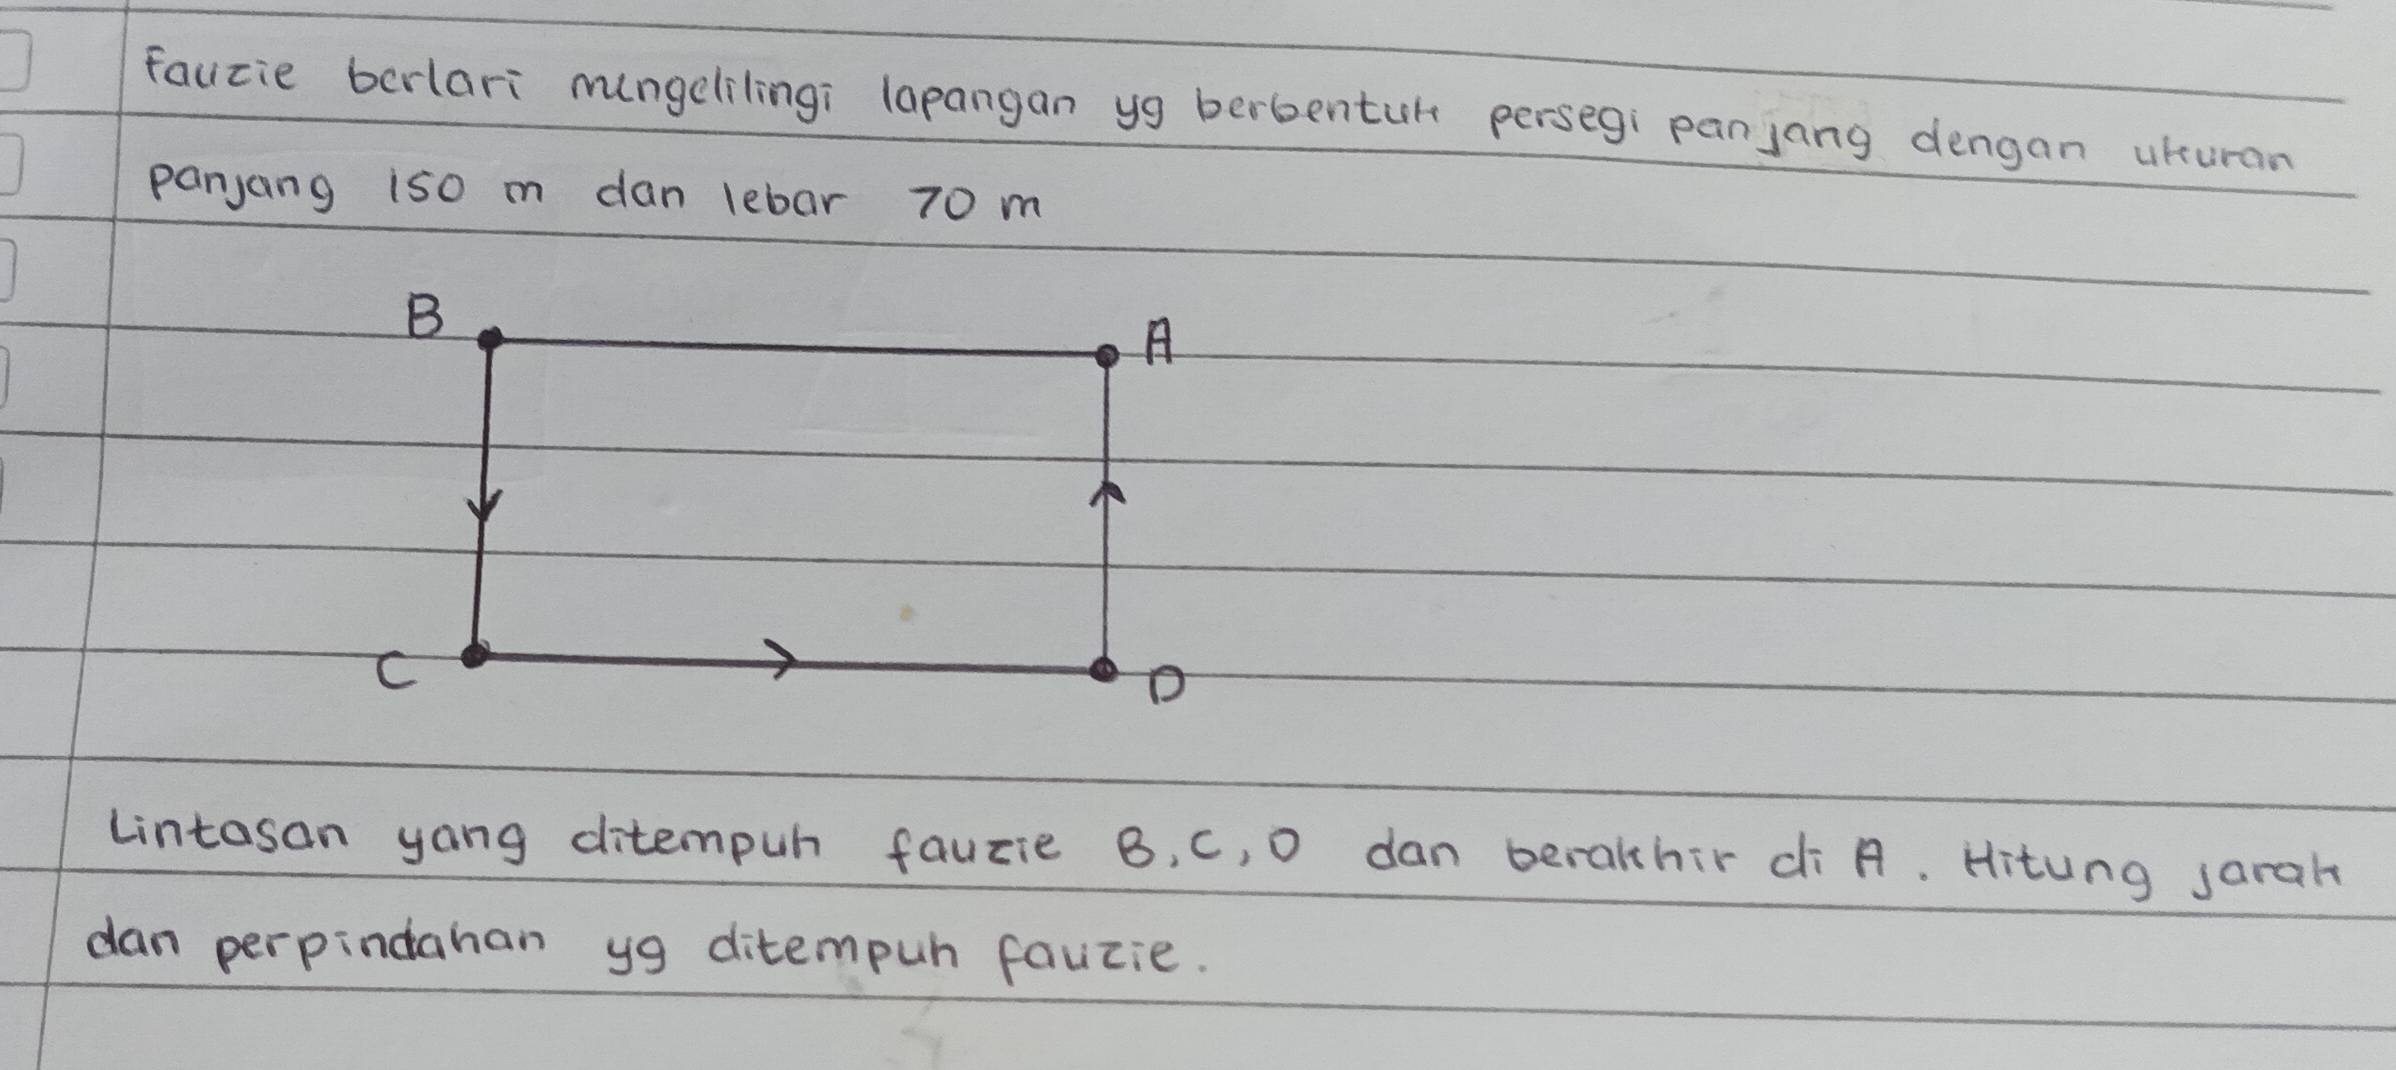 Fauzie berlari mengelilingi lapangan yg berbentuk persegi panjang dengan ukuran
panjang 150 m dan lebar 70 m
B
A
C
D
Lintasan yang ditempuh fauzie B, C, D dan berakhir di A. Hitung jarak
dan perpindahan yg ditempuh fauzie.